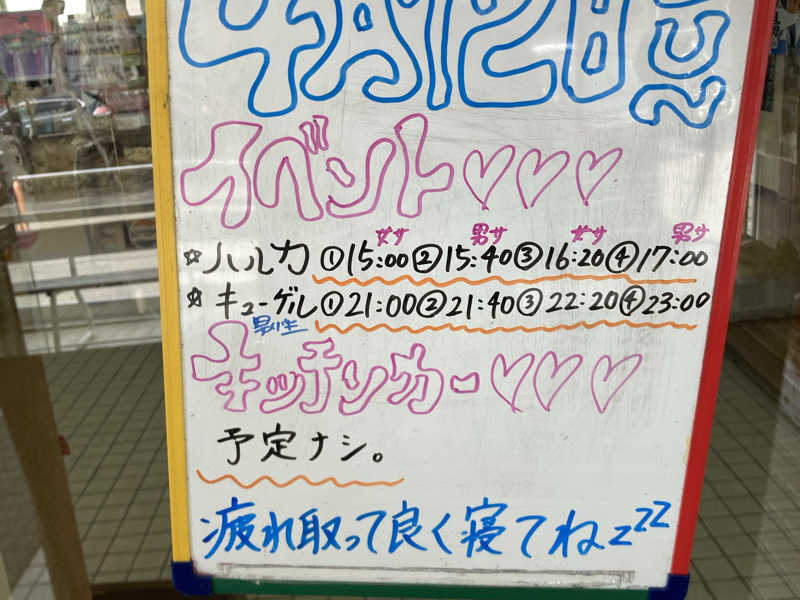 4月12日
イベント♡♡♡
女サ 男サ 女サ 男サ
☆ハルカ ①15:00②15:40③16:20④17:00
☆キューゲル①21:00②21:40③22:20④23:00
男性
キッチンカー♡♡♡
予定ナシ。
疲れ取って良く寝てねzzz